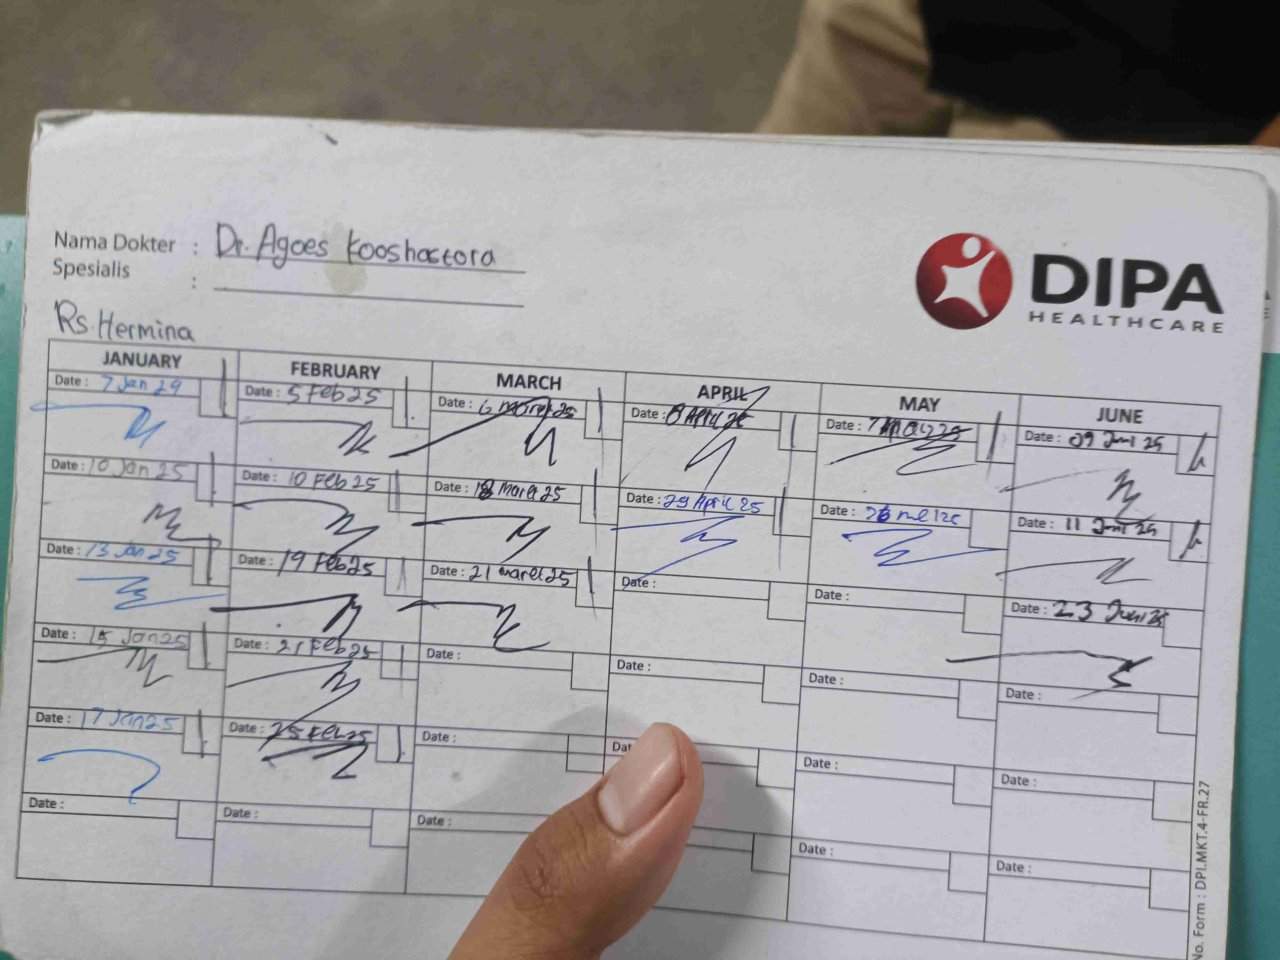 Nama Dokter : Dr. Agoes Kooshastora
Spesialis :
Rs. Hermina
DIPA
HEALTHCARE
JANUARY FEBRUARY MARCH APRIL MAY JUNE
Date : 7 Jan 29 Date : 5 Feb 25 Date : 6 Maret 25 Date : 8 April 25 Date : 7 May 25 Date : 09 Juni 25
Date : 10 Jan 25 Date : 10 Feb 25 Date : 18 Maret 25 Date : 29 April 25 Date : Date : 11 Juni 25
Date : 13 Jan 25 Date : 19 Feb 25 Date : 21 Maret 25 Date : Date : Date : 23 Juni 25
Date : 15 Jan 25 Date : 21 Feb 25 Date : Date : Date : Date :
Date : 17 Jan 25 Date : 25 Feb 25 Date : Dat Date : Date :
Date : Date : Date : Date : Date :
No. Form : DPI.MKT.4-FR.27